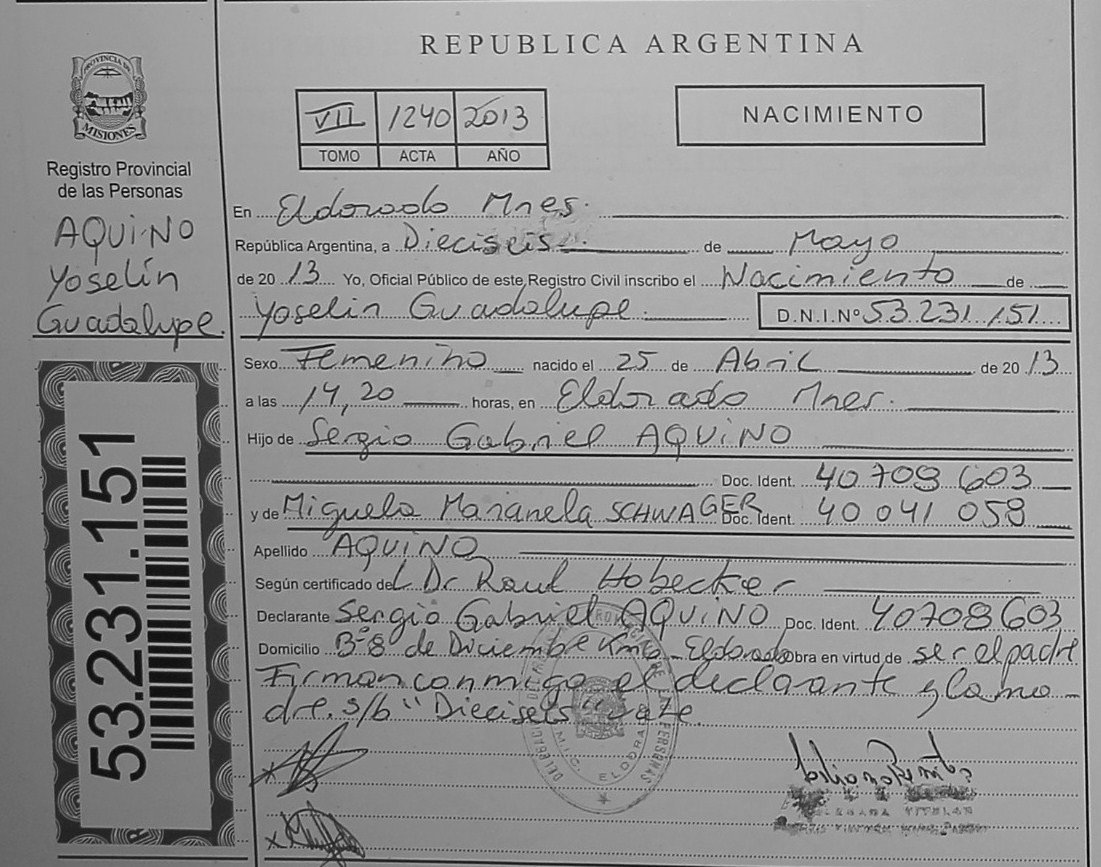 REPUBLICA ARGENTINA
PROVINCIA DE
MISIONES
Registro Provincial
de las Personas
AQUINO
Yoselín
Guadalupe.
53.231.151
VII 1240 2013
TOMO ACTA AÑO
NACIMIENTO
En Eldorado Mnes.
República Argentina, a Dieciseis de Mayo
de 20 13 Yo, Oficial Público de este Registro Civil inscribo el Nacimiento de
Yoselin Guadalupe. D.N.I.Nº 53.231.151
Sexo Femenino nacido el 25 de Abril de 20 13
a las 14,20 horas, en Eldorado Mnes.
Hijo de Sergio Gabriel AQUINO
Doc. Ident. 40 708 603
y de Miguela Marianela SCHWAGER Doc. Ident. 40 041 058
Apellido AQUINO
Según certificado del Dr Raul Hobecker
Declarante Sergio Gabriel AQUINO Doc. Ident. 40708603
Domicilio Bº 8 de Diciembre Eldorado Obra en virtud de ser el padre
Firman conmigo el declarante y la ma-
dre. s/b "Dieciseis" vale.